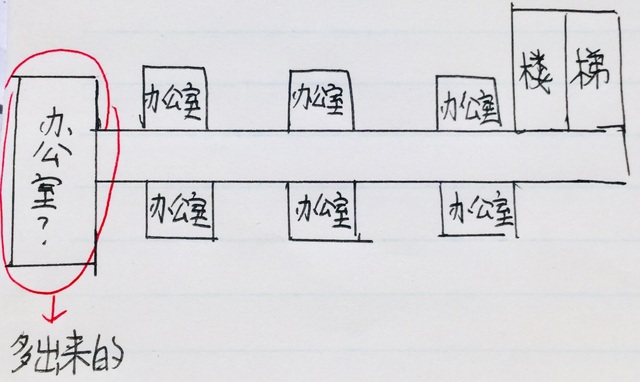 楼梯
办公室
办公室
办公室
办公室?
办公室
办公室
办公室
多出来的